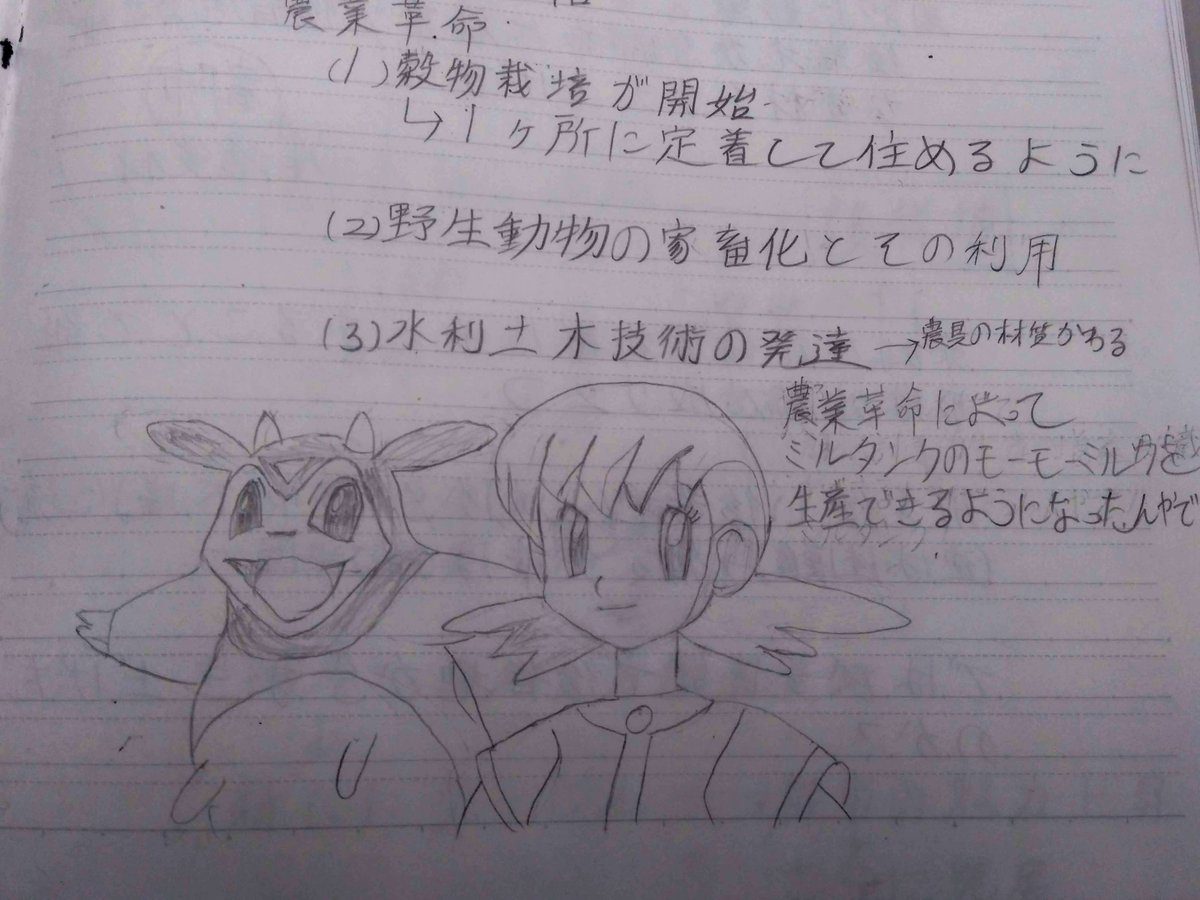 農業革命
(1)穀物栽培が開始
↳1ヶ所に定着して住めるように
(2)野生動物の家畜化とその利用
(3)水利土木技術の発達→農具の材質かわる
農業革命によって
ミルタンクのモーモーミルクを
生産できるようになったんやで